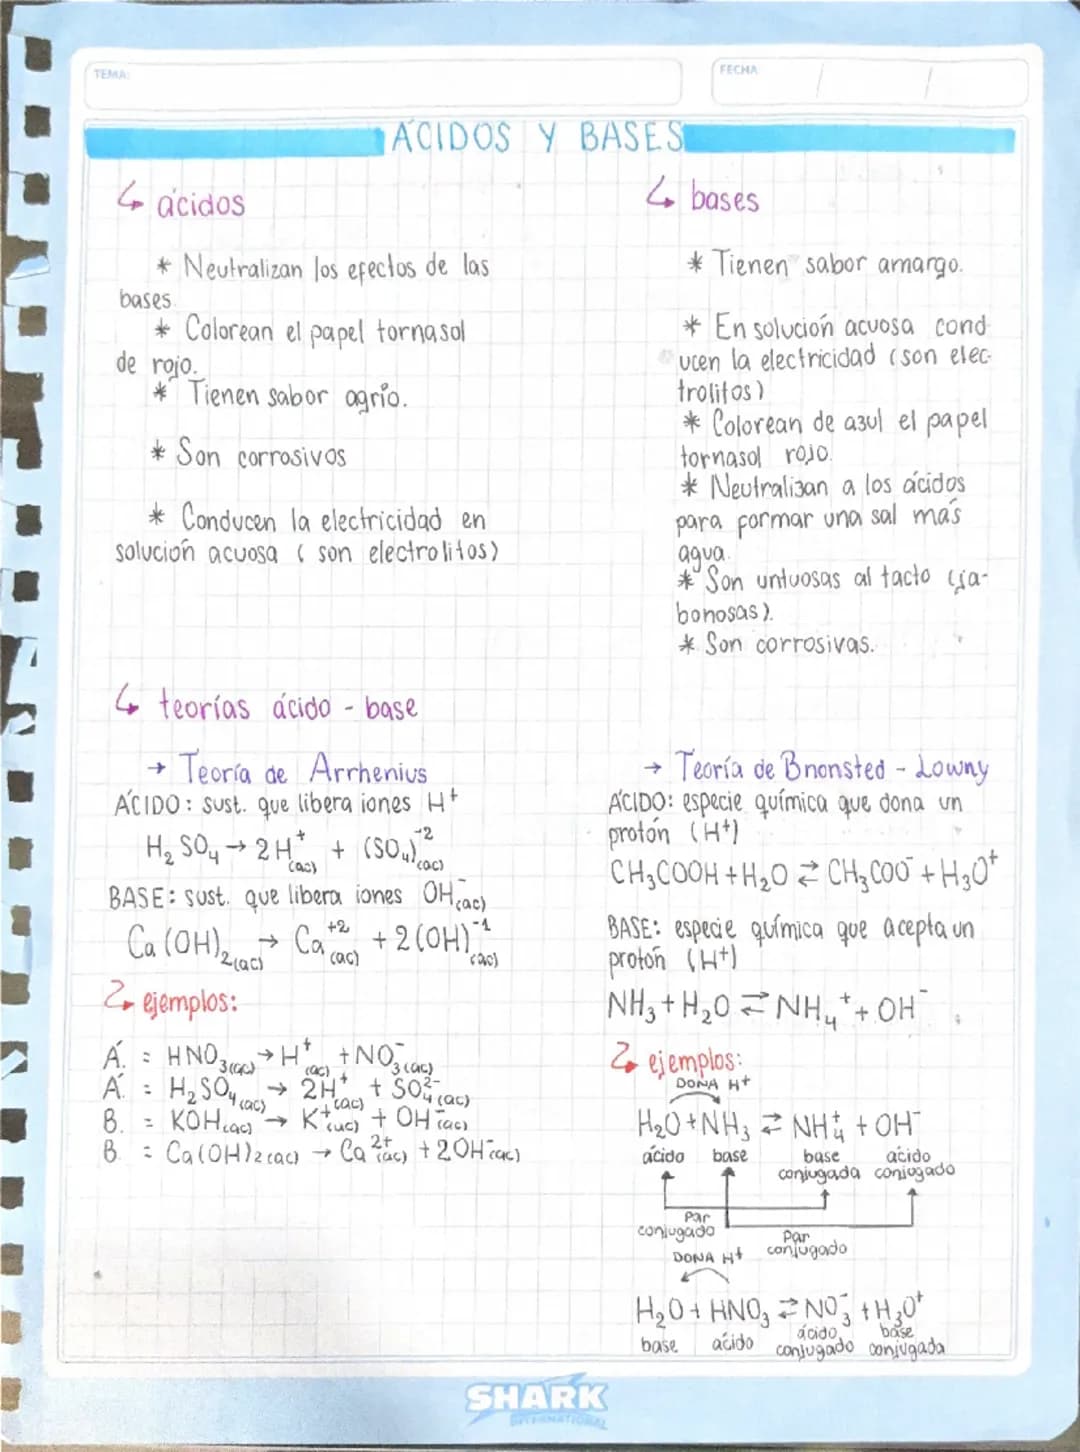 TEMA:
FECHA
ÁCIDOS Y BASES
↳ ácidos
* Neutralizan los efectos de las
bases.
* Colorean el papel tornasol
de rojo.
* Tienen sabor agrio.
* Son corrosivos
* Conducen la electricidad en
solución acuosa (son electrolitos)
↳ bases
* Tienen sabor amargo.
* En solución acuosa cond
ucen la electricidad (son elec-
trolitos)
* Colorean de azul el papel
tornasol rojo.
* Neutralizan a los ácidos
para formar una sal más
agua.
* Son untuosas al tacto (ja-
bonosas).
* Son corrosivas.
↳ teorías ácido - base
→ Teoría de Arrhenius
ÁCIDO: sust. que libera iones H⁺
H₂SO₄ → 2H⁺(ac) + (SO₄)⁻²(ac)
BASE: sust. que libera iones OH⁻(ac)
Ca(OH)₂(ac) → Ca⁺²(ac) + 2(OH)⁻¹(ac)
↳ ejemplos:
Á. = HNO₃(ac) → H⁺(ac) + NO₃⁻(ac)
Á. = H₂SO₄(ac) → 2H⁺(ac) + SO₄²⁻(ac)
B. = KOH(ac) → K⁺(ac) + OH⁻(ac)
B. = Ca(OH)₂(ac) → Ca²⁺(ac) + 2OH⁻(ac)
→ Teoría de Bnonsted - Lowny
ÁCIDO: especie química que dona un
protón (H⁺)
CH₃COOH + H₂O ⇄ CH₃COO⁻ + H₃O⁺
BASE: especie química que acepta un
protón (H⁺)
NH₃ + H₂O ⇄ NH₄⁺ + OH⁻
↳ ejemplos:
DONA H⁺
H₂O + NH₃ ⇄ NH₄⁺ + OH⁻
ácido base base ácido
conjugada conjugado
Par
conjugado
Par
conjugado
DONA H⁺
H₂O + HNO₃ ⇄ NO₃⁻ + H₃O⁺
base ácido ácido base
conjugado conjugada
SHARK
INTERNATIONAL